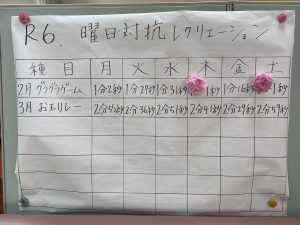 R6. 曜日対抗レクリエーション
種目 月 火 水 木 金 土
2月 グラグラゲーム 1分2秒 1分29秒 1分31秒 1秒 1分16秒 1秒
3月 お玉リレー 2分45秒 2分36秒 2分51秒 2分41秒 2分29秒 2分59秒